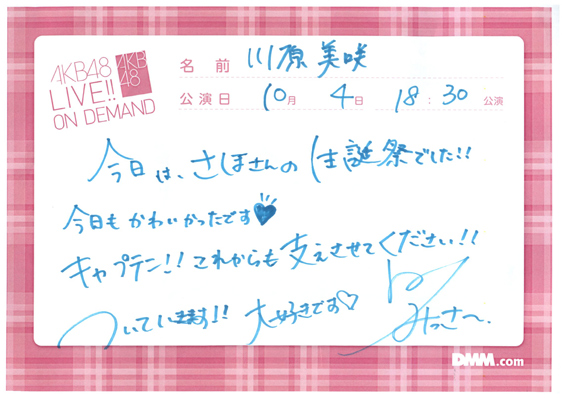 AKB48
LIVE!!
ON DEMAND
AKB
48
名 前 川原美咲
公演日 10月 4日 18:30 公演
今日は、さほさんの生誕祭でした!!
今日もかわいかったです
キャプテン!! これからも支えさせてください!!
ついていきます!! 大好きです♡
みっさー。
DMM.com